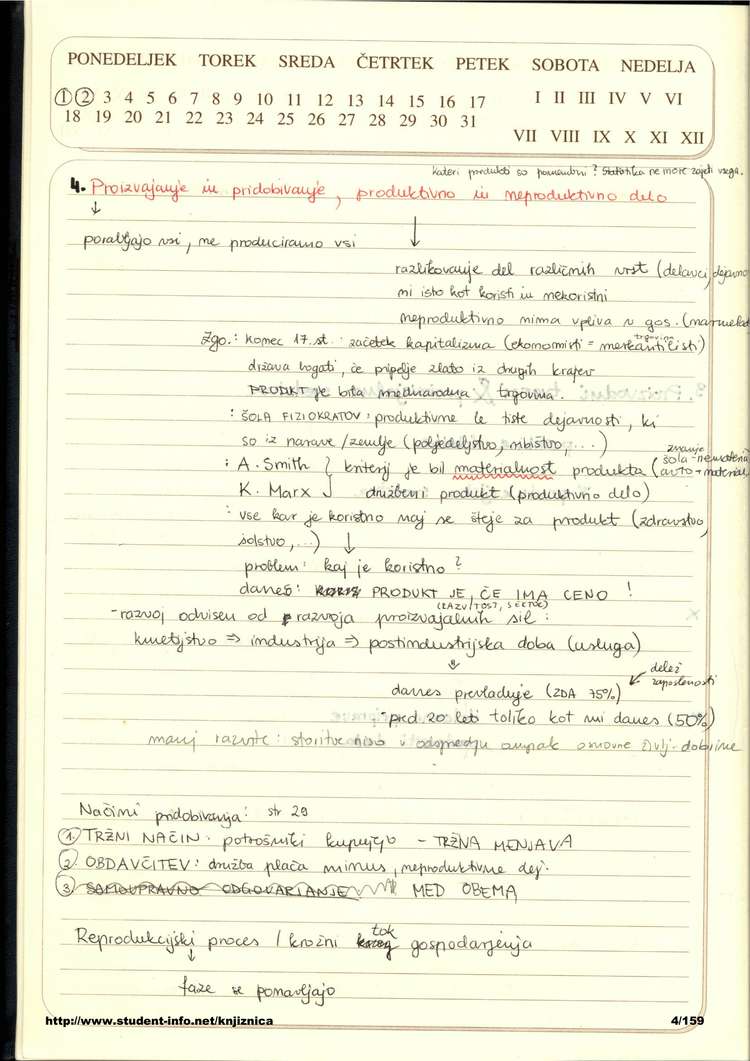 PONEDELJEK TOREK SREDA ČETRTEK PETEK SOBOTA NEDELJA
1 2 3 4 5 6 7 8 9 10 11 12 13 14 15 16 17 I II III IV V VI
18 19 20 21 22 23 24 25 26 27 28 29 30 31
VII VIII IX X XI XII
kateri produkti so pomembni? Statistika ne more zajeti vsega.
4. Proizvajanje in pridobivanje, produktivno in neproduktivno delo
↓
porabljajo vsi, ne produciramo vsi
razlikovanje del različnih vrst (delavci, dejavno
ni isto kot koristni in nekoristni
neproduktivno nima vpliva v gos.
Zgo.: konec 17. st. začetek kapitalizma (ekonomisti = merkantilisti)
trgovina
država bogati, če pripelje zlato iz drugih krajev
PRODUKT je bila mednarodna trgovina.
: ŠOLA FIZIOKRATOV: produktivne le tiste dejavnosti, ki
so iz narave / zemlje (poljedeljstvo, ribištvo, ...)
znanje
šola - nemateria
: A. Smith } kriterij je bil materialnost produkta (avto → material
K. Marx družbeni produkt (produktivno delo)
: vse kar je koristno naj se šteje za produkt (zdravstvo,
šolstvo, ...) ↓
problem: kaj je koristno?
danes: PRODUKT JE, ČE IMA CENO!
(RAZVITOST, SEKTOR)
- razvoj odvisen od razvoja proizvajalnih sil:
kmetijstvo ⇒ industrija ⇒ postindustrijska doba (usluga)
delež
zaposlenosti
danes prevladuje (ZDA 75%)
- pred 20 leti toliko kot mi danes (50%)
manj razvite: storitve niso v ospredju ampak osnovne življ. dobrine
Načini pridobivanja: str 29
1 TRŽNI NAČIN: potrošniki kupujejo - TRŽNA MENJAVA
2 OBDAVČITEV: družba plača minus, neproduktivne dej.
3 SAMOUPRAVNO ODGOVARJANJE MED OBEMA
tok
Reprodukcijski proces / krožni krog gospodarjenja
↓
faze se ponavljajo
http://www.student-info.net/knjiznica 4/159